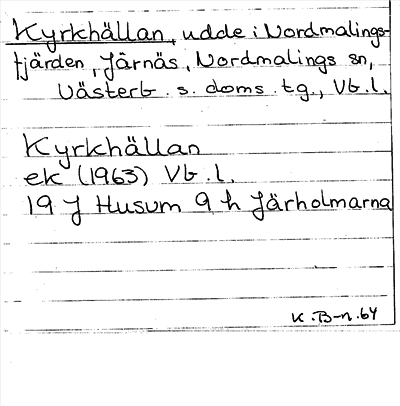 Kyrkhällan, udde i Nordmalings-
fjärden, Järnäs, Nordmalings sn,
Västerb. s. doms. tg., Vb. l.
Kyrkhällan
ek (1963) Vb. l.
19 J Husum 9 h Järholmarna
K. B-n. 64